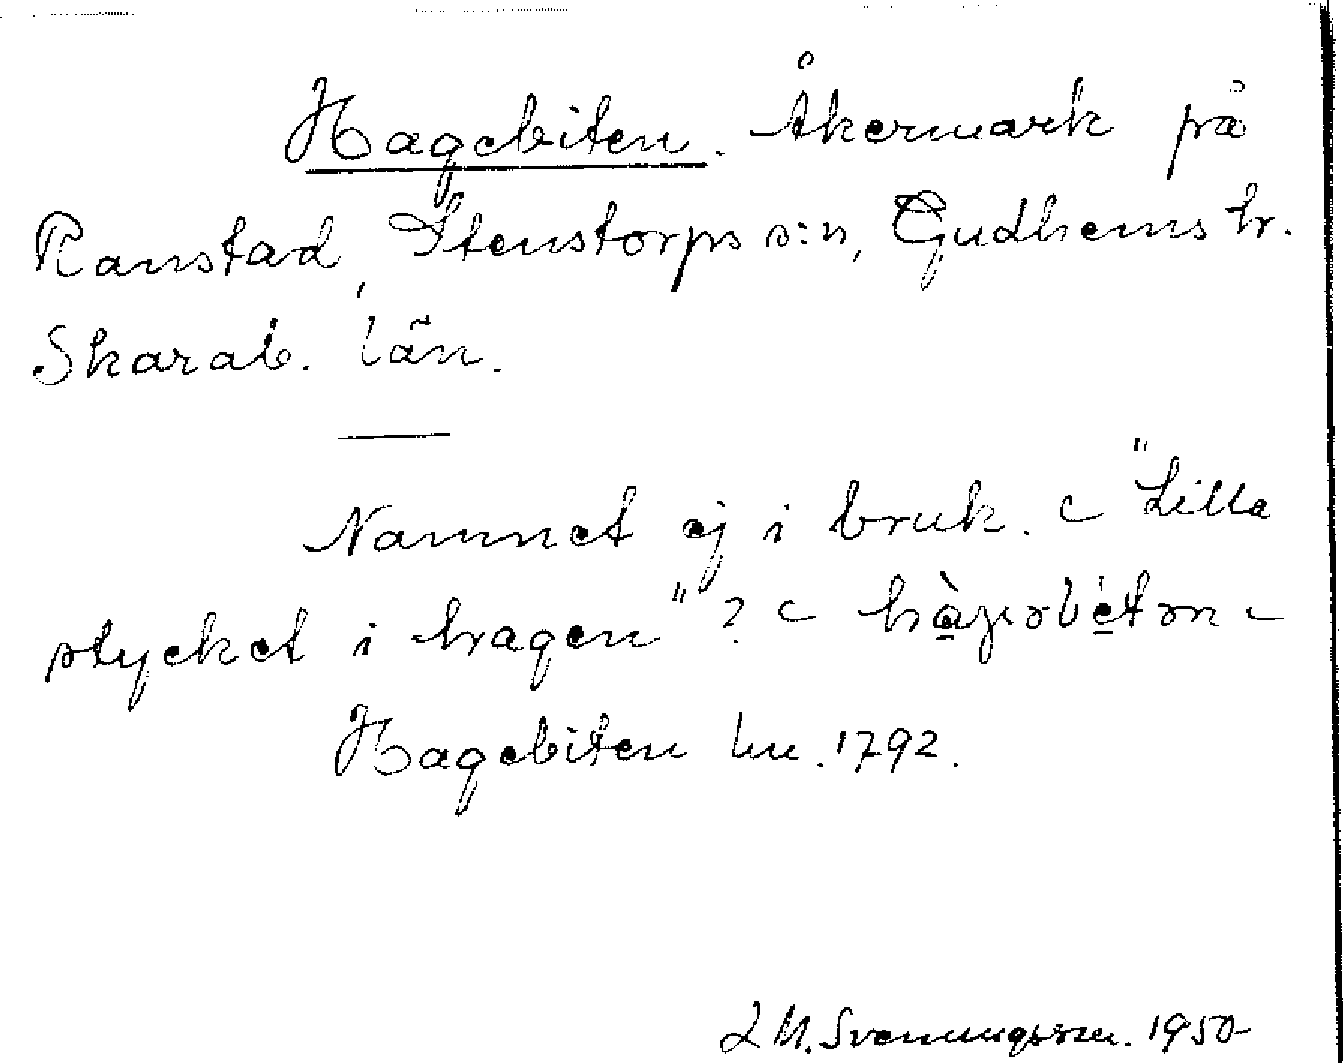 Hagebiten. Åkermark på
Ranstad, Stenstorps s:n, Gudhems hr.
Skarab. län.
Namnet ej i bruk. "Lilla
stycket i hagen"?
Hagebiten hu. 1792.
L M. Svenungsson. 1950